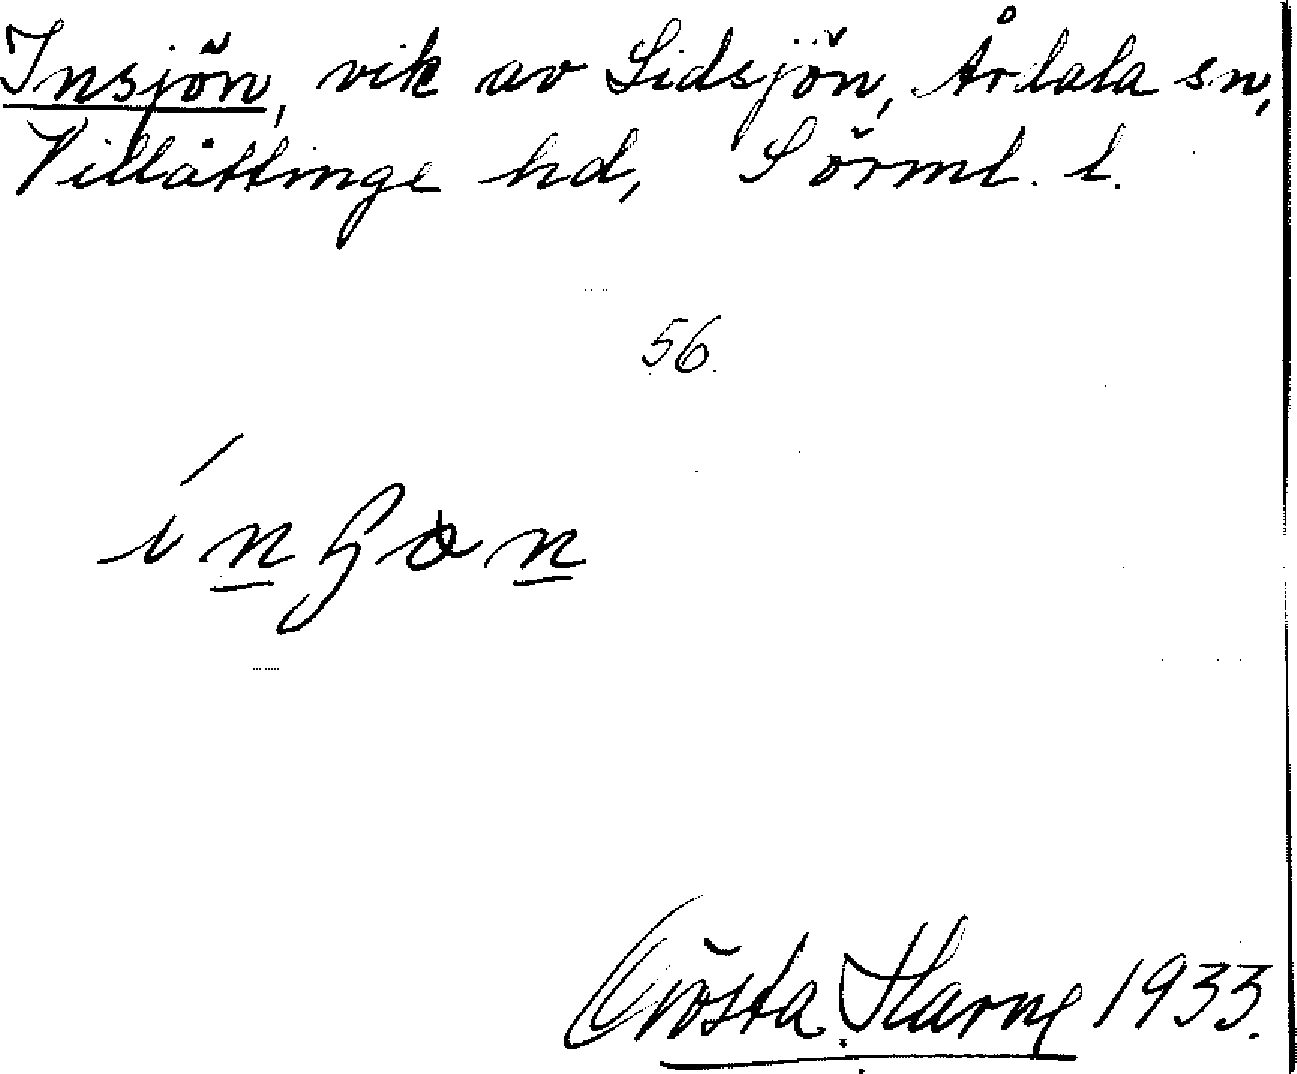 Insjön, vik av Lidsjön, Årdala sn,
Villåttinge hd, Sörml. l.
56.
Gösta Harne 1933.